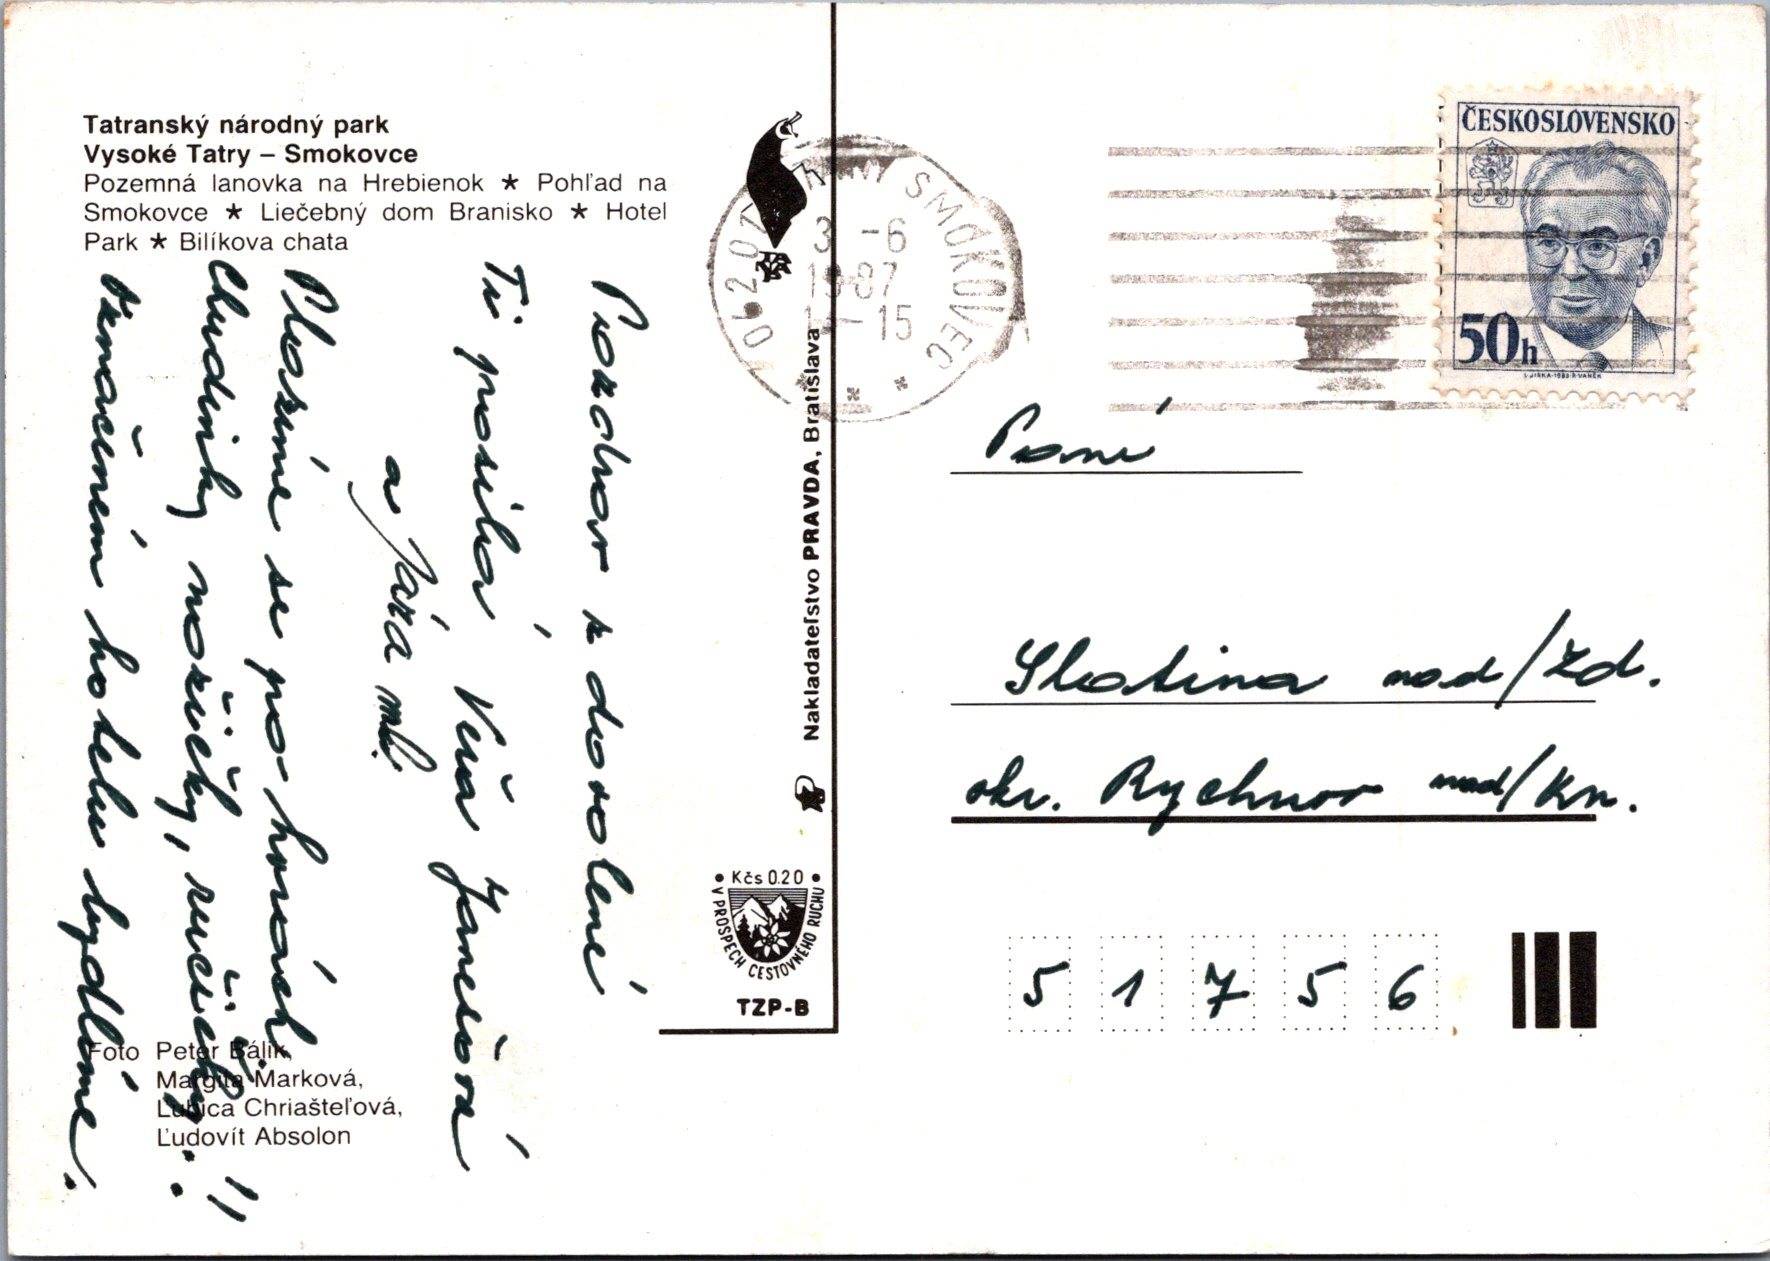 Tatranský národný park
Vysoké Tatry – Smokovce
Pozemná lanovka na Hrebienok ★ Pohľad na
Smokovce ★ Liečebný dom Branisko ★ Hotel
Park ★ Bilíkova chata
Pozdrav z dovolené
Ti posílá Věra Janešová
a Jára ml.
Plazíme se po horách
Chudinky nožičky, ručičky..."
označeném hotelu bydlíme.
Foto Peter Bálik,
Margita Marková,
Ľubica Chriašteľová,
Ľudovít Absolon
Nakladateľstvo PRAVDA, Bratislava
Kčs 0.20
V PROSPECH CESTOVNÉHO RUCHU
TZP-B
062 01 SMOKOVEC
3 -6
1987
-15
ČESKOSLOVENSKO
50h
Paní
Slatina nad/Zd.
okr. Rychnov nad/Kn.
5 1 7 5 6